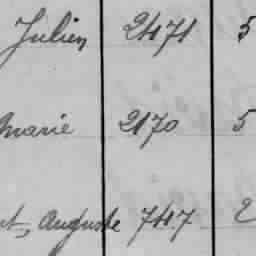 Julien 2471 5
Marie 2170 5
et, Auguste 7417 2